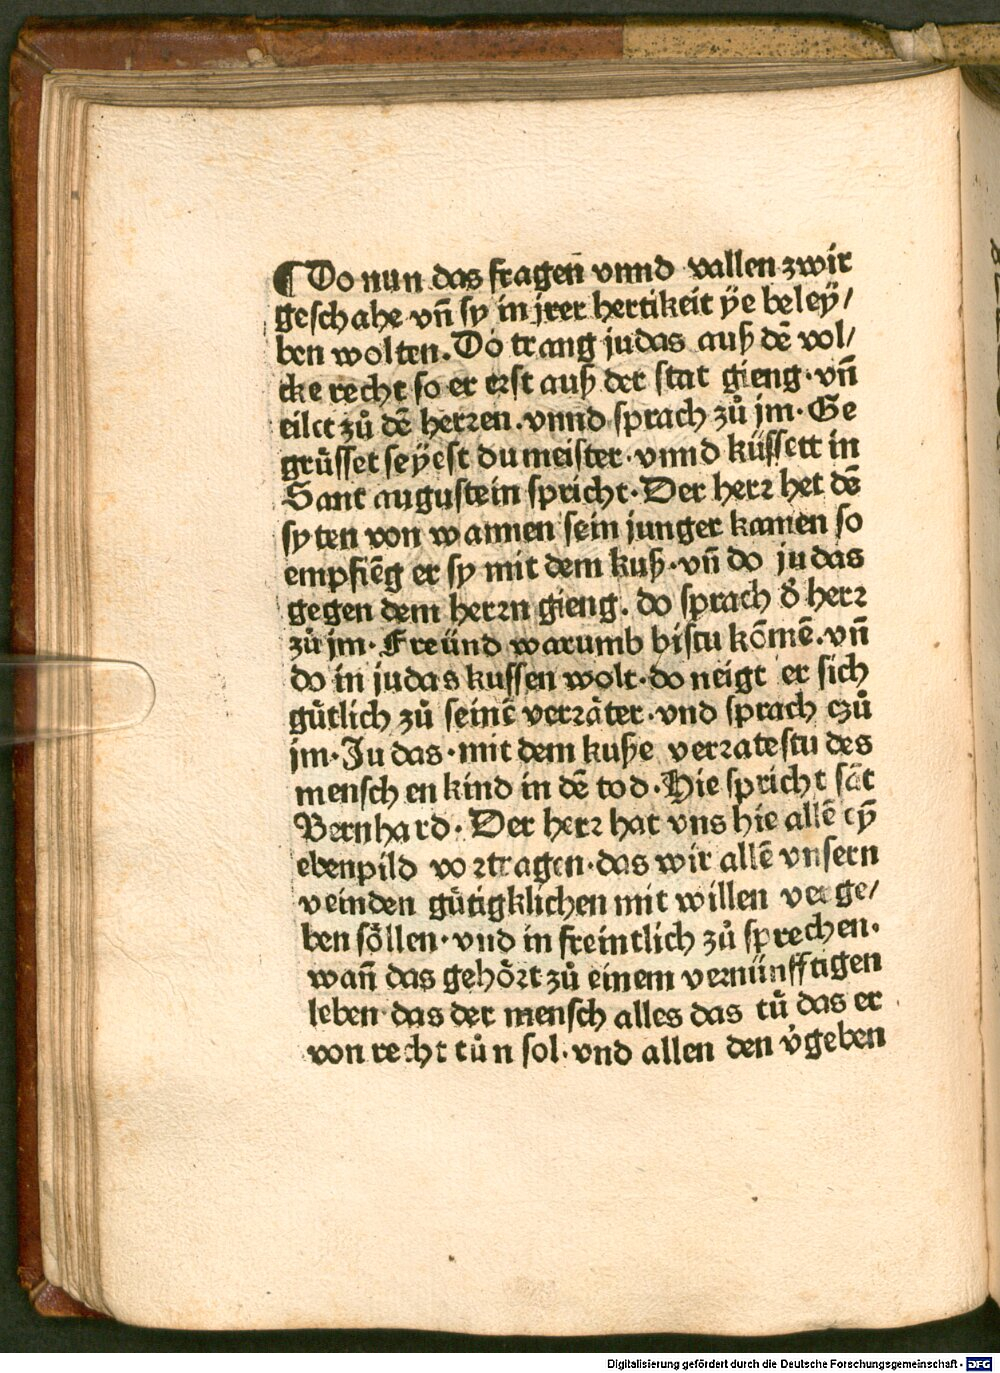 ¶ Do nun das fragen vnnd vallen zwir
geschahe vn̄ sy in jrer hertikeit ÿe beleÿ/
ben wolten. Do trang judas auß dē vol/
cke recht so er erst auß der stat gieng·vn̄
eilet zů dē herꝛen.vnnd sprach zů jm·Ge
grůsset seÿest du meister·vnnd küssett in
Sant augustein spricht·Der herꝛ het dē
syten von wannen sein junger kamen so
empfiēg er sy mit dem kuß·vn̄ do judas
gegen dem herꝛn gieng. do sprach d̓ herꝛ
zů jm·Freünd warumb bistu kōmē.vn̄
do in judas kussen wolt·do neigt er sich
gůtlich zů seinē verꝛäter·vnd sprach czů
jm·Judas·mit dem kuße verꝛatestu des
menschen kind in dē tod·Hie spricht sāt
Bernhard·Der herꝛ hat vns hie allē eÿ
ebenpild voꝛtragen·das wir allē vnsern
veinden gůtigklichen mit willen verge/
ben söllen·vnd in freintlich zů sprechen·
wan̄ das gehöꝛt zů einem vernünfftigen
leben das der mensch alles das tů das er
von recht tůn sol·vnd allen den v̓geben
Digitalisierung gefördert durch die Deutsche Forschungsgemeinschaft - DFG